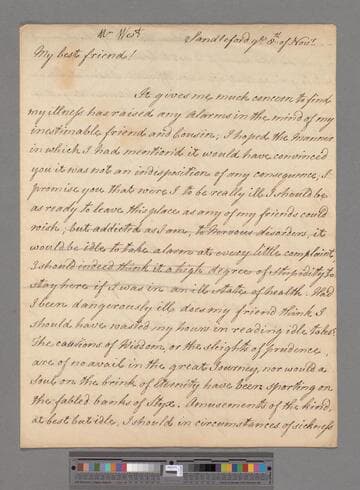 Mr West
Sandleford ye 8th of Novr
My best friend!
It gives me much concern to find
my illness has raised any alarms in the mind of my
inestimable friend and Cousin, I hoped the manner
in which I had mention'd it would have convinced
you it was not an indisposition of any consequence, I
promise you that were I to be really ill I should be
as ready to leave this place as any of my friends could
wish; but addicted as I am, to Nervous disorders, it
would be idle to take alarm at every little complaint,
I should indeed think it a high degree of Stupidity to
stay here if I was in an ill state of health. Had
I been dangerously ill does my friend think I
should have wasted my hours in reading idle tales?
The cautions of Wisdom, or the sleights of prudence,
are of no avail in the great Journey, nor would a
soul on the brink of Eternity have been sporting on
the fabled banks of Styx. Amusements of the kind,
at best but idle, I should in circumstances of sickness